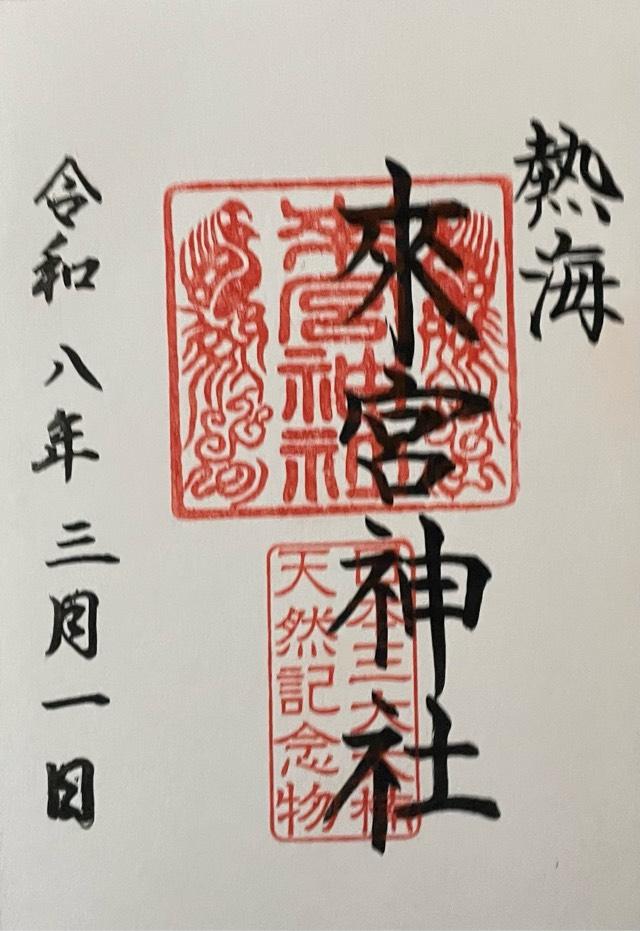 熱海
來宮神社
來宮神社
日本三大大楠
天然記念物
令和八年三月一日